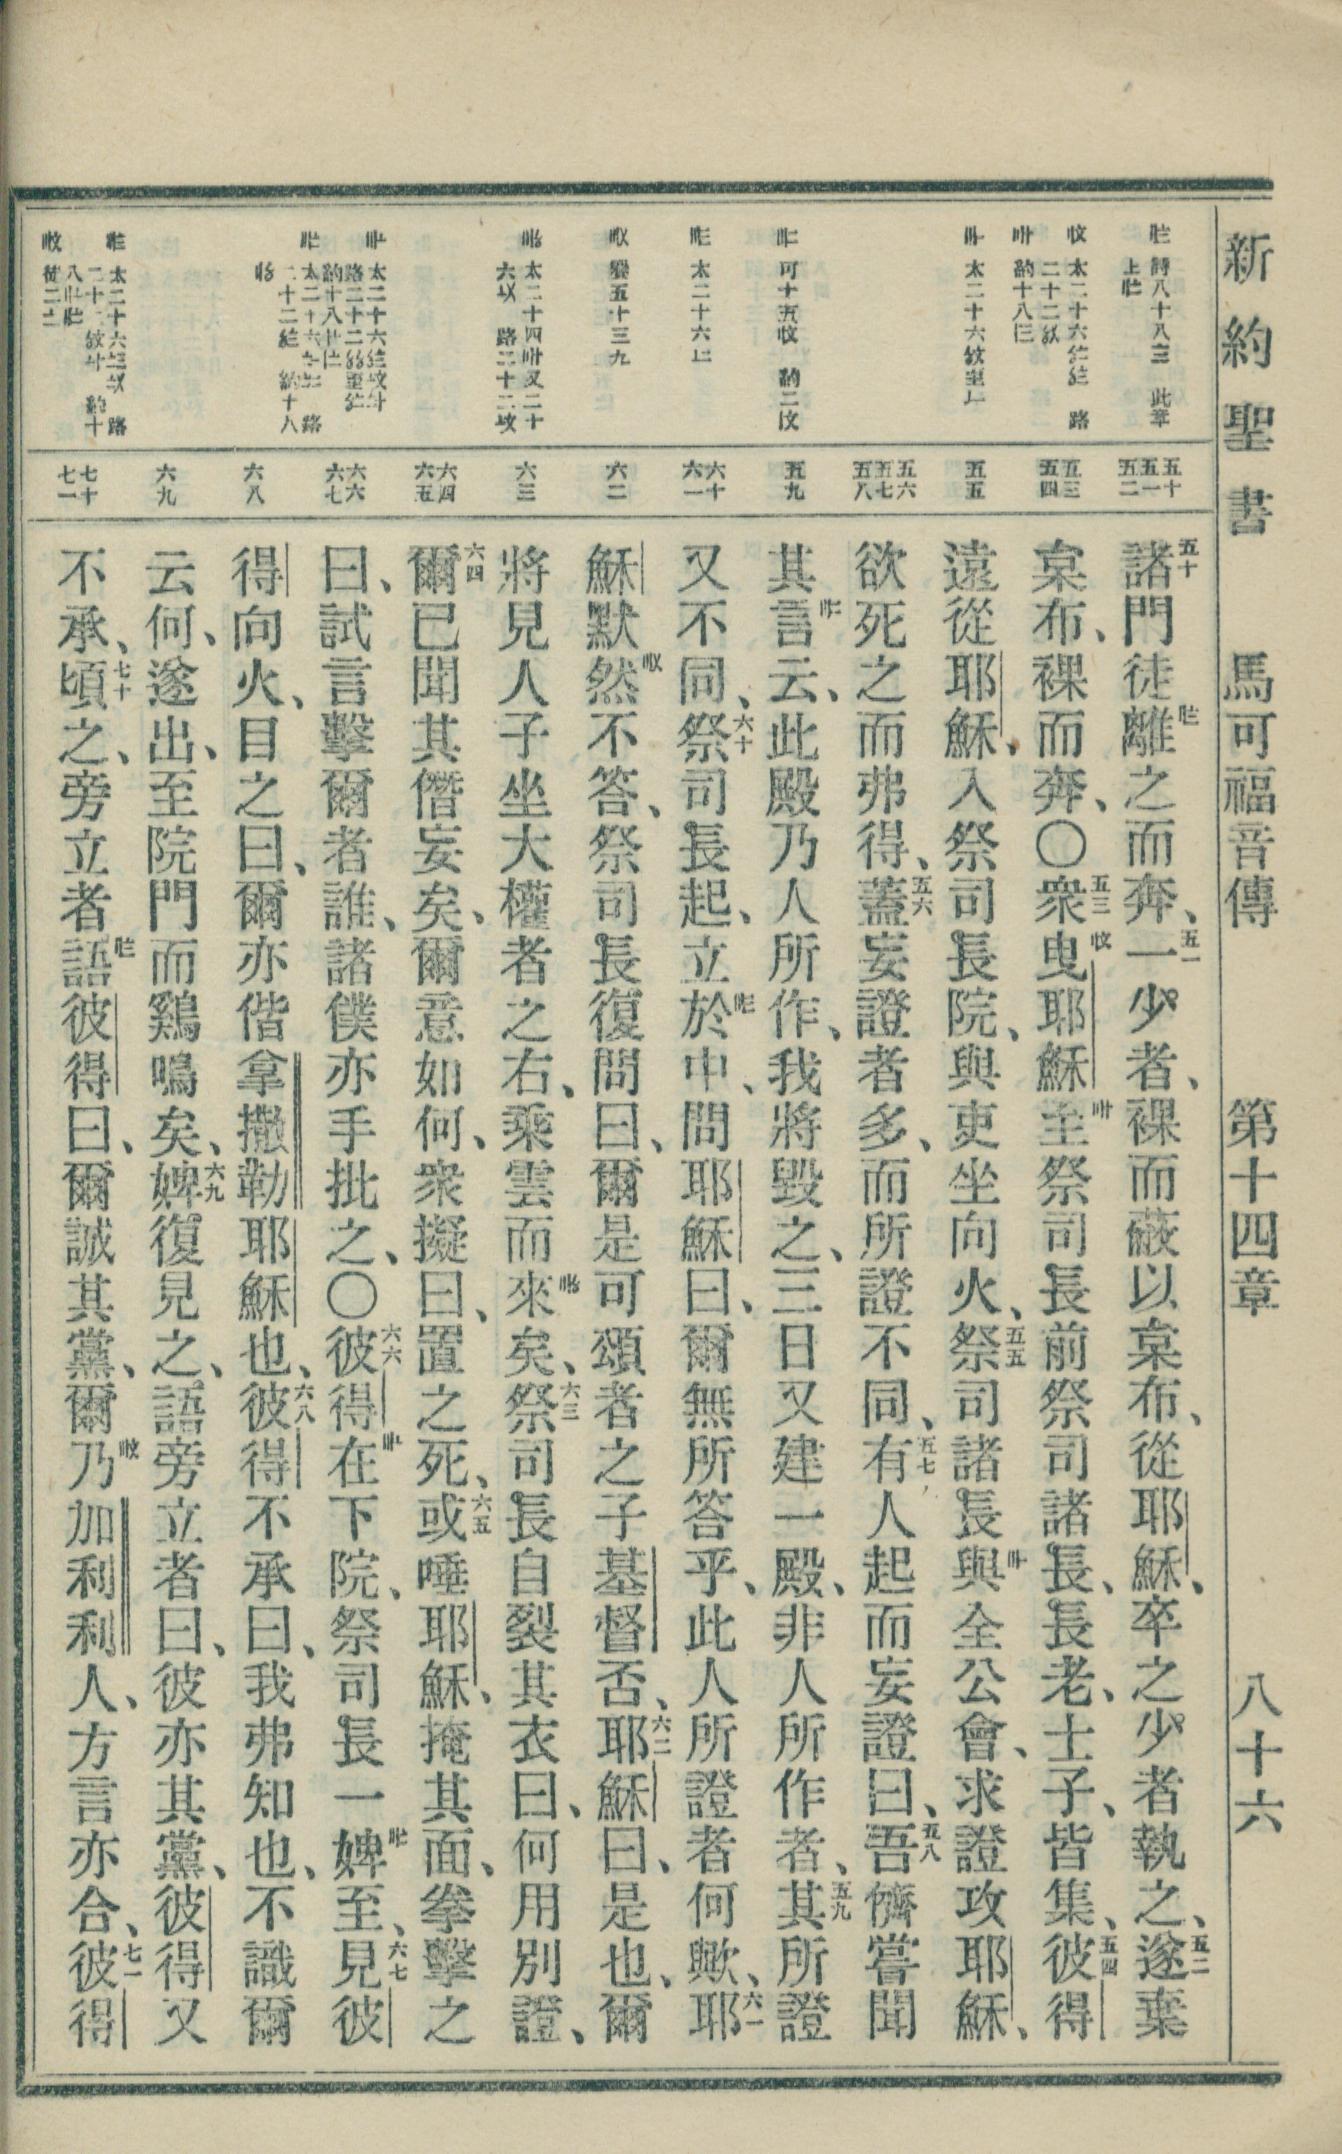 新約聖書 馬可福音傳 第十四章 八十六
五十 五一 五二
五三 五四
五五
五六 五七 五八
五九
六十 六一
六二
六三
六四 六五
六六 六七
六八
六九
七十 七一
五十諸門徒離之而奔、五一一少者、裸而蔽以枲布、從耶穌、卒之少者執之、五二遂棄
枲布、裸而奔、〇五三衆曳耶穌至祭司長前祭司諸長、長老、士子、皆集、五四彼得
遠從耶穌、入祭司長院、與吏坐向火、五五祭司諸長與全公會、求證攻耶穌、
欲死之而弗得、五六蓋妄證者多、而所證不同、五七有人起而妄證曰、五八吾儕嘗聞
其言云、此殿乃人所作、我將毀之、三日又建一殿、非人所作者、五九其所證
又不同、六十祭司長起、立於中、問耶穌曰、爾無所答乎、此人所證者何歟、六一耶
穌默然不答、祭司長復問曰、爾是可頌者之子基督否、六二耶穌曰、是也、爾
將見人子坐大權者之右、乘雲而來矣、六三祭司長自裂其衣曰、何用別證、
六四爾已聞其僭妄矣、爾意如何、衆擬曰、置之死、六五或唾耶穌、掩其面、拳擊之
曰、試言擊爾者誰、諸僕亦手批之、〇六六彼得在下院、祭司長一婢至、六七見彼
得向火、目之曰、爾亦偕拿撒勒耶穌也、六八彼得不承曰、我弗知也、不識爾
云何、遂出、至院門而鷄鳴矣、六九婢復見之、語旁立者曰、彼亦其黨、彼得又
不承、七十頃之、旁立者語彼得曰、爾誠其黨、爾乃加利利人、方言亦合、七一彼得